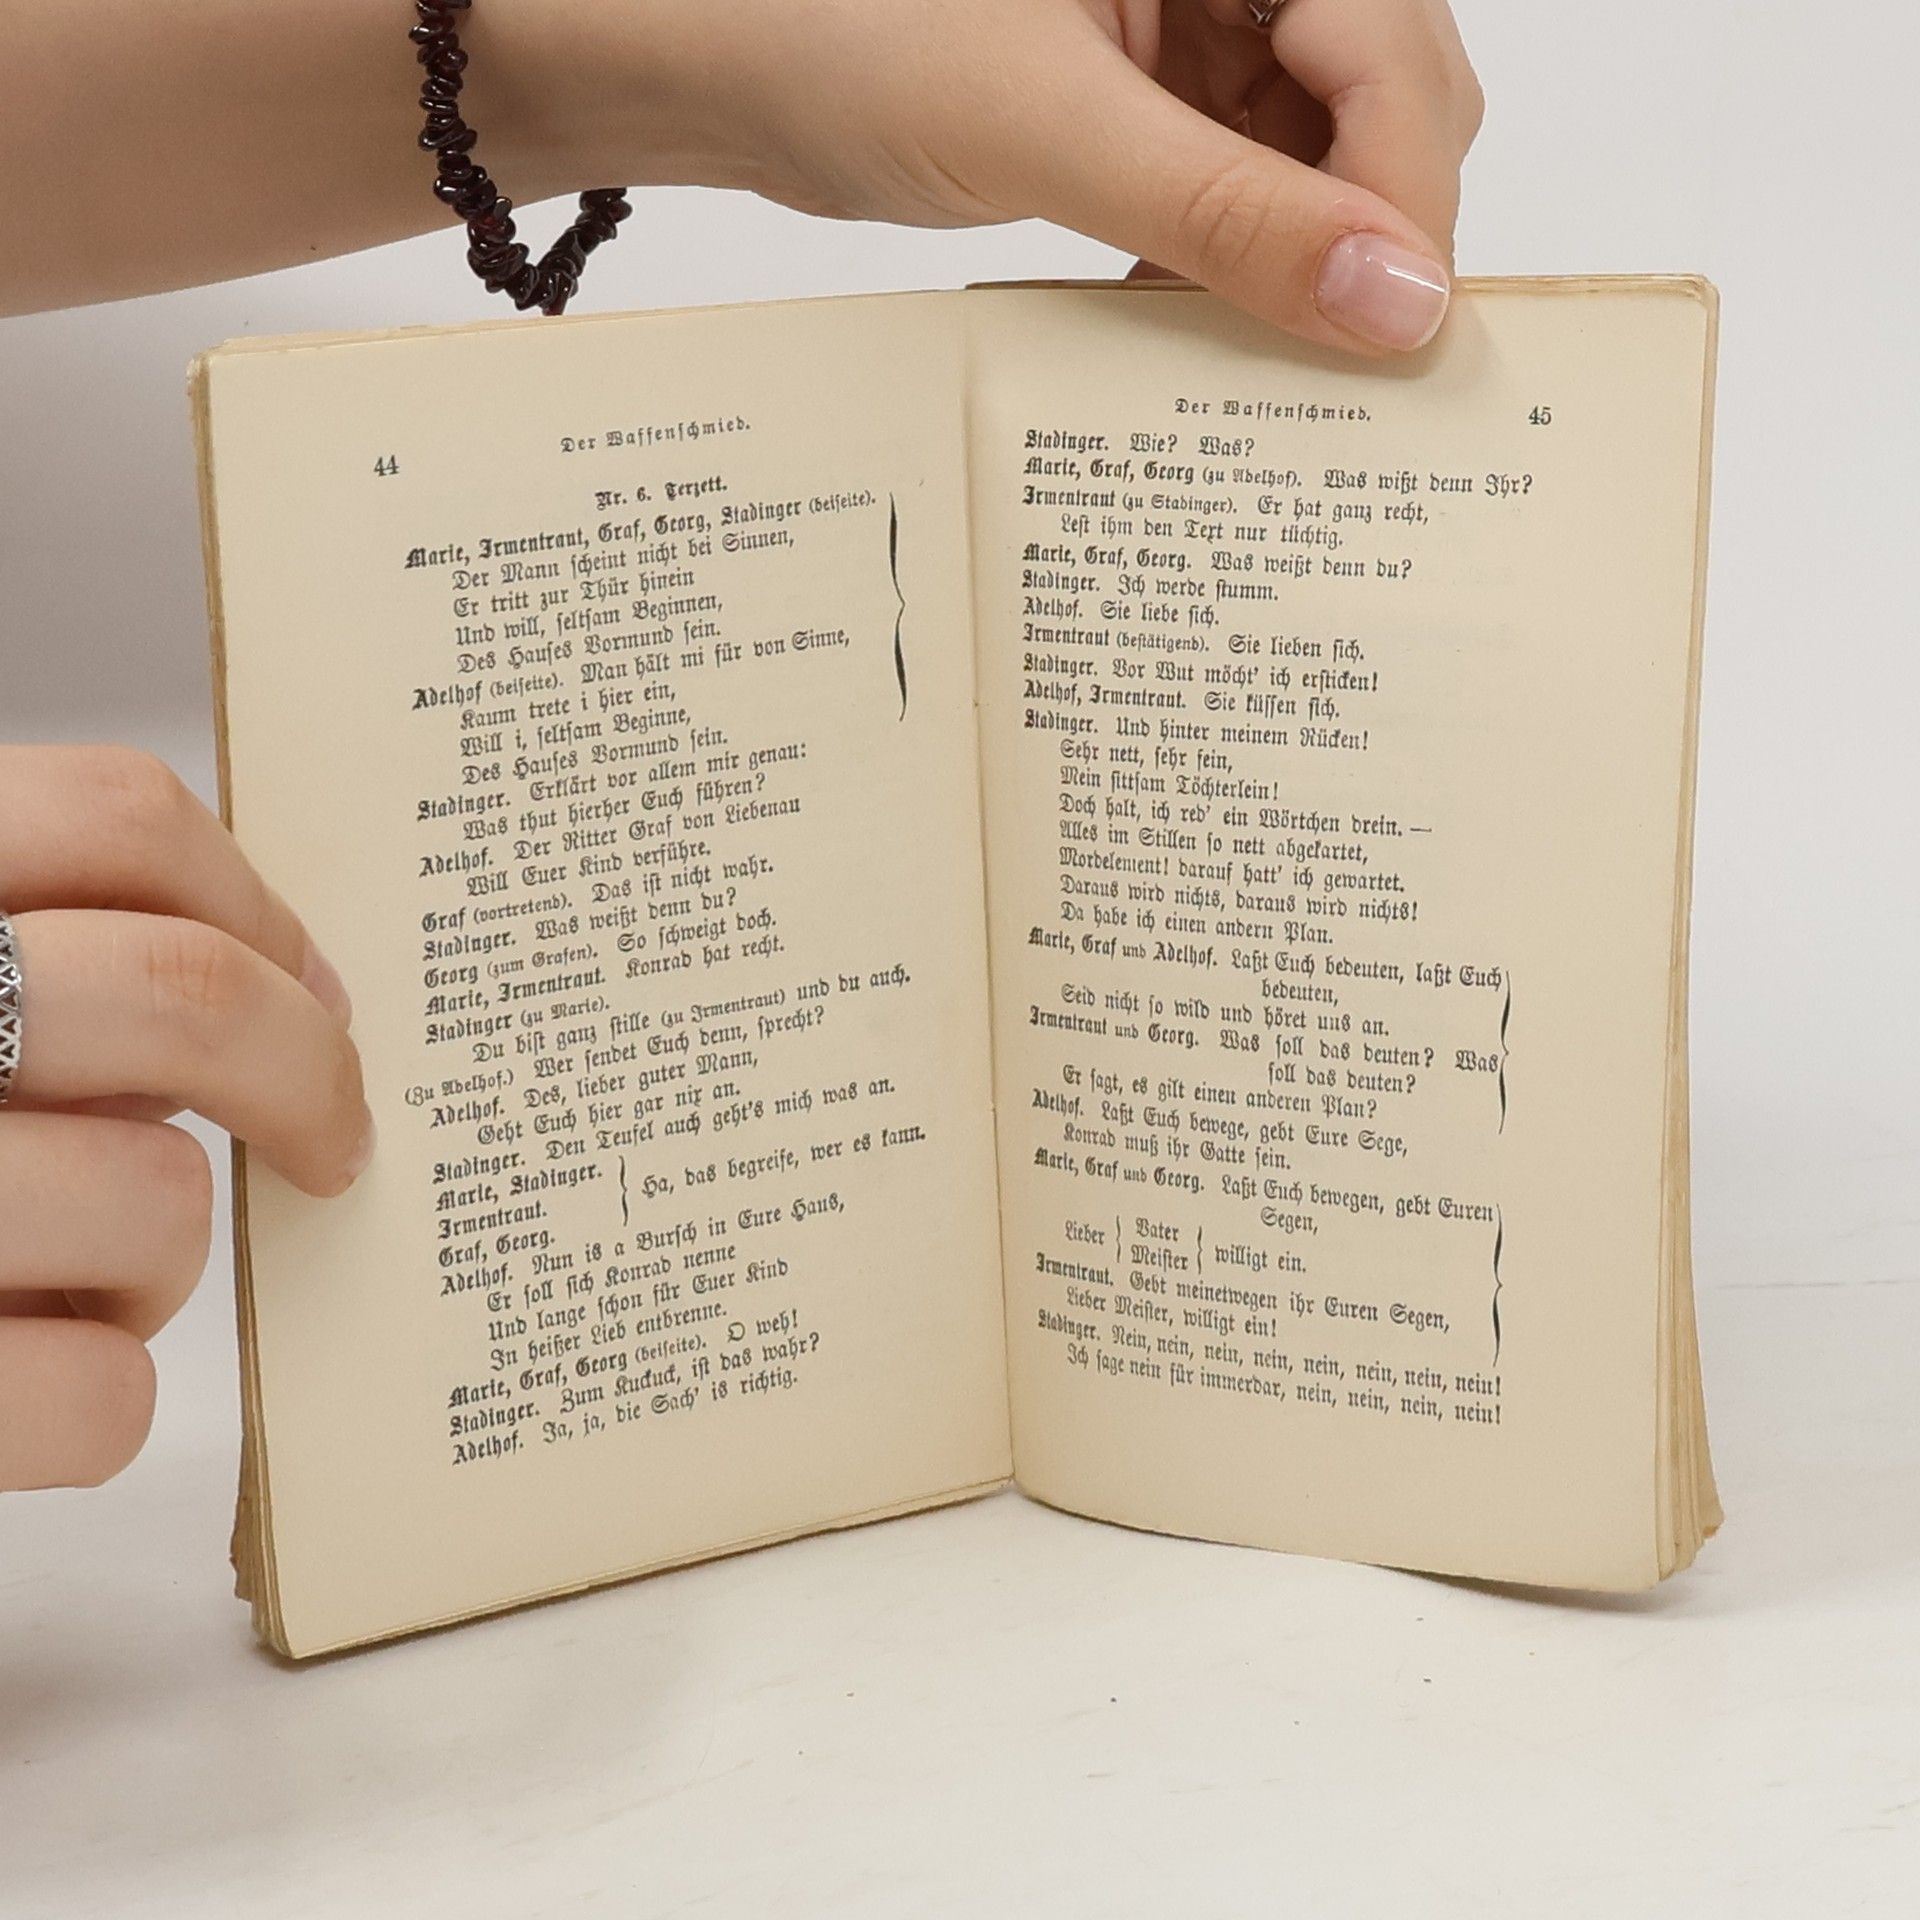 44
Der Waffenschmied.
Nr. 6. Terzett.
Marie, Irmentraut, Graf, Georg, Stadinger (beiseite).
Der Mann scheint nicht bei Sinnen,
Er tritt zur Thür hinein
Und will, seltsam Beginnen,
Des Hauses Vormund sein.
Adelhof (beiseite). Man hält mi für von Sinne,
Kaum trete i hier ein,
Will i, seltsam Beginne,
Des Hauses Vormund sein.
Stadinger. Erklärt vor allem mir genau:
Was thut hierher Euch führen?
Adelhof. Der Ritter Graf von Liebenau
Will Euer Kind verführe.
Graf (vortretend). Das ist nicht wahr.
Stadinger. Was weißt denn du?
Georg (zum Grafen). So schweigt doch.
Marie, Irmentraut. Konrad hat recht.
Stadinger (zu Marie).
Du bist ganz stille (zu Irmentraut) und du auch.
(Zu Adelhof.) Wer sendet Euch denn, sprecht?
Adelhof. Des, lieber guter Mann,
Geht Euch hier gar nix an.
Stadinger. Den Teufel auch geht's mich was an.
Marie, Stadinger.
Irmentraut. } Ha, das begreife, wer es kann.
Graf, Georg.
Adelhof. Nun is a Bursch in Eure Haus,
Er soll sich Konrad nenne
Und lange schon für Euer Kind
In heißer Lieb entbrenne.
Marie, Graf, Georg (beiseite). O weh!
Stadinger. Zum Kuckuck, ist das wahr?
Adelhof. Ja, ja, die Sach' is richtig.
Der Waffenschmied. 45
Stadinger. Wie? Was?
Marie, Graf, Georg (zu Adelhof). Was wißt denn Ihr?
Irmentraut (zu Stadinger). Er hat ganz recht,
Lest ihm den Text nur tüchtig.
Marie, Graf, Georg. Was weißt denn du?
Stadinger. Ich werde stumm.
Adelhof. Sie liebe sich.
Irmentraut (bestätigend). Sie lieben sich.
Stadinger. Vor Wut möcht' ich ersticken!
Adelhof, Irmentraut. Sie küssen sich.
Stadinger. Und hinter meinem Rücken!
Sehr nett, sehr fein,
Mein sittsam Töchterlein!
Doch halt, ich red' ein Wörtchen drein. —
Alles im Stillen so nett abgekartet,
Mordelement! darauf hatt' ich gewartet.
Daraus wird nichts, daraus wird nichts!
Da habe ich einen andern Plan.
Marie, Graf und Adelhof. Laßt Euch bedeuten, laßt Euch
bedeuten,
Seid nicht so wild und höret uns an.
Irmentraut und Georg. Was soll das deuten? Was
soll das deuten?
Er sagt, es gilt einen anderen Plan?
Adelhof. Laßt Euch bewege, gebt Eure Sege,
Konrad muß ihr Gatte sein.
Marie, Graf und Georg. Laßt Euch bewegen, gebt Euren
Segen,
Lieber { Vater
Meister } willigt ein.
Irmentraut. Gebt meinetwegen ihr Euren Segen,
Lieber Meister, willigt ein!
Stadinger. Nein, nein, nein, nein, nein, nein, nein, nein!
Ich sage nein für immerdar, nein, nein, nein, nein!